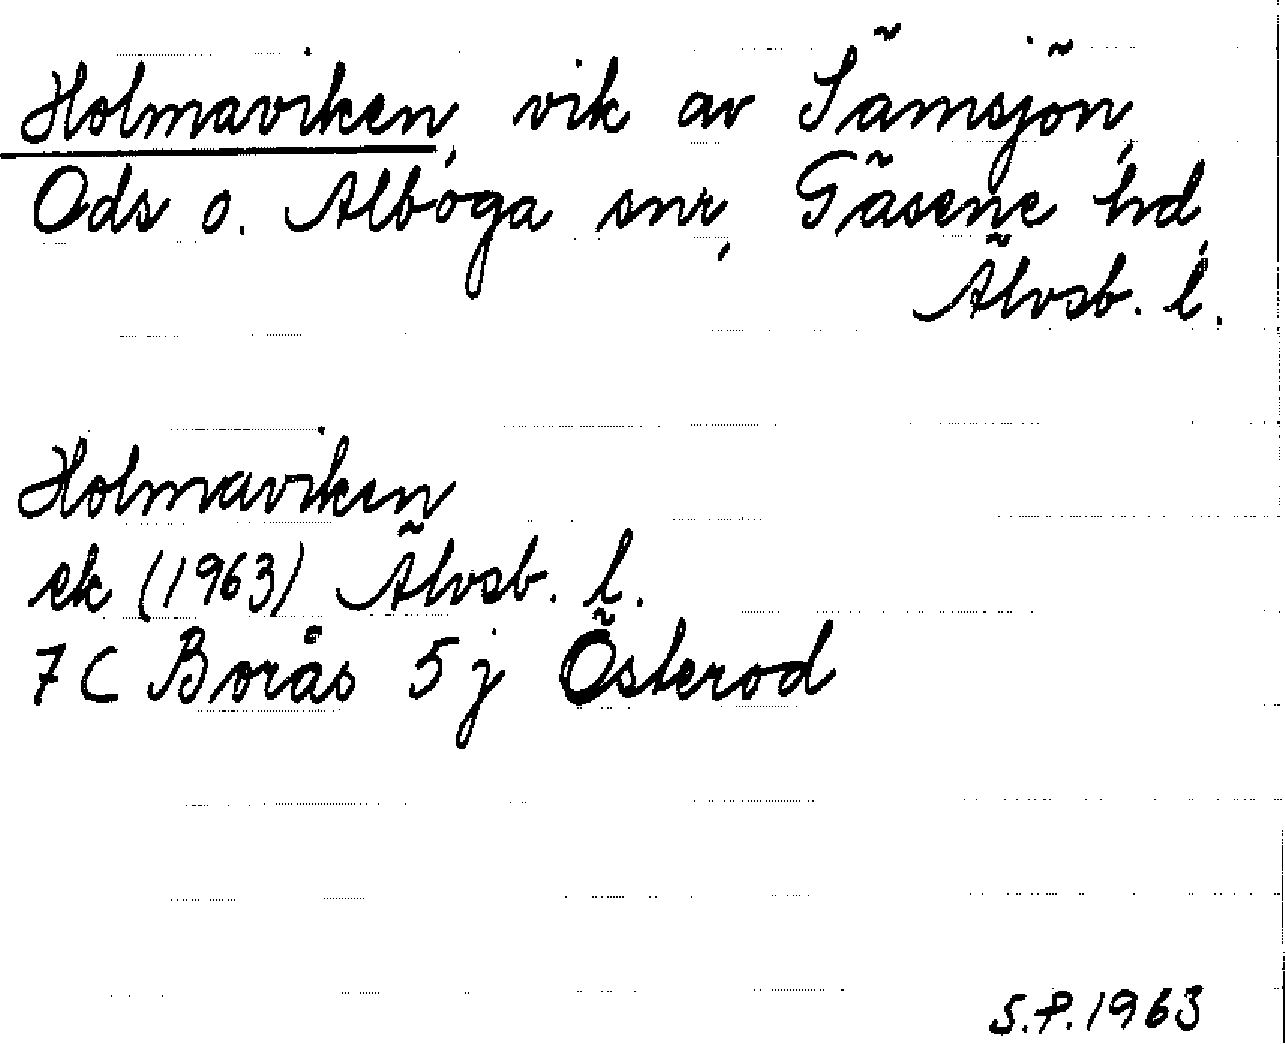 Holmaviken, vik av Sämsjön,
Ods o. Alboga snr, Gäsene hd,
Älvsb. l.
Holmaviken
ek (1963) Älvsb. l.
7 C Borås 5 j Österod
S.P. 1963